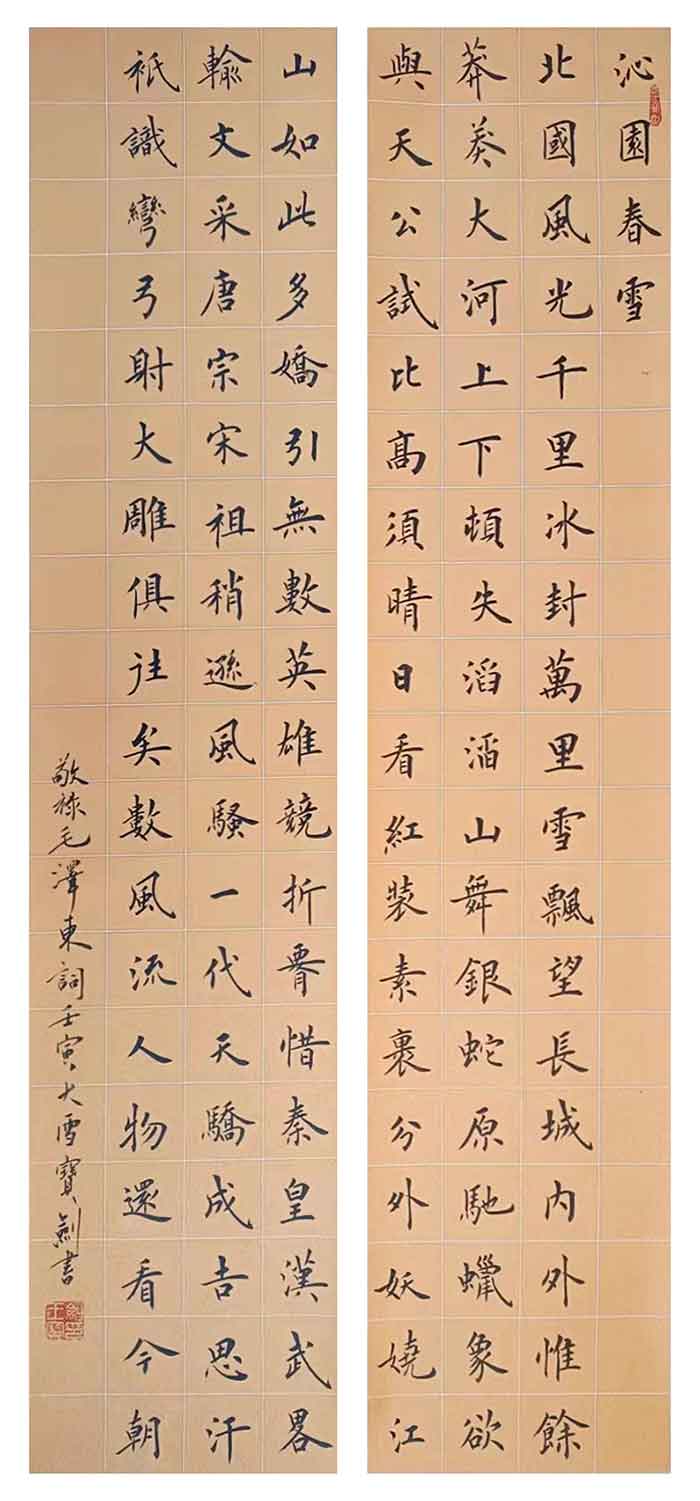 沁園春雪
北國風光千里冰封萬里雪飄望長城內外惟餘
莽莽大河上下頓失滔滔山舞銀蛇原馳蠟象欲
與天公試比高須晴日看紅裝素裹分外妖嬈江
山如此多嬌引無數英雄競折腰惜秦皇漢武畧
輸文采唐宗宋祖稍遜風騷一代天驕成吉思汗
祇識彎弓射大雕俱往矣數風流人物還看今朝
敬錄毛澤東詞壬寅大雪寶劍書